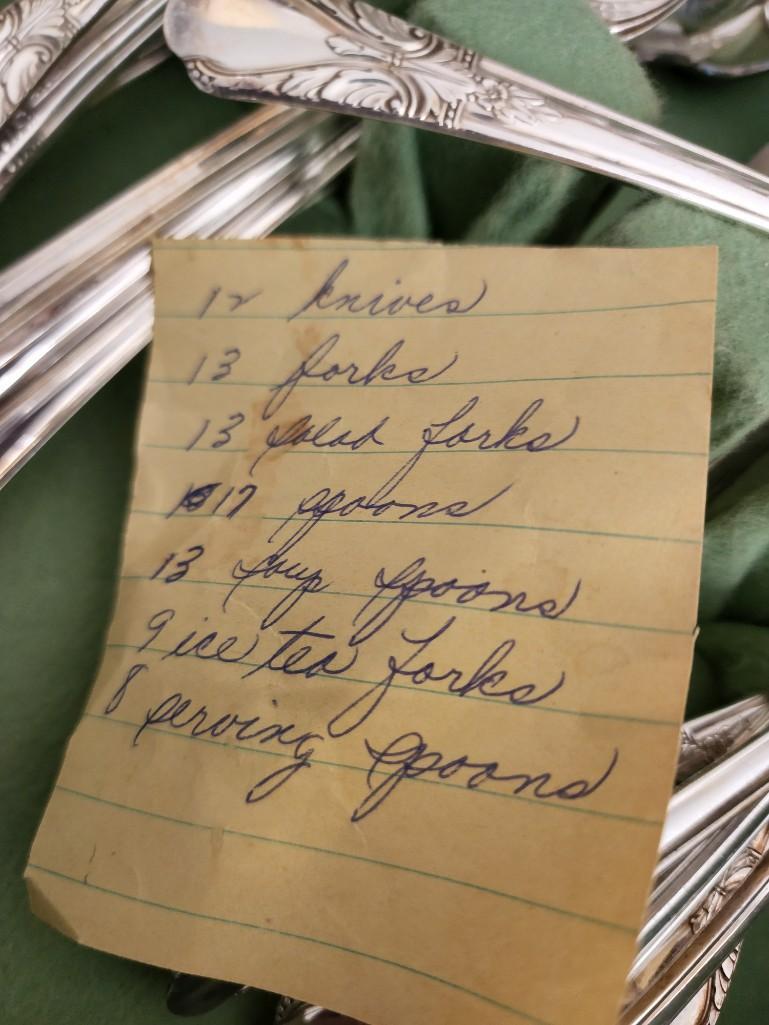 12 knives
13 forks
13 salad forks
17 spoons
13 soup spoons
9 ice tea forks
8 serving spoons